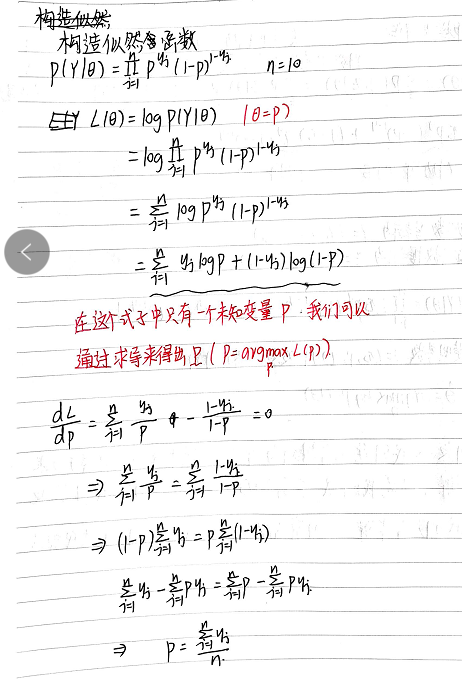 构造似然
构造似然函数
P(Y|θ) = ∏_{j=1}^{n} p^{y_j} (1-p)^{1-y_j}    n=10
L(θ) = log P(Y|θ)    (θ=p)
= log ∏_{j=1}^{n} p^{y_j} (1-p)^{1-y_j}
= ∑_{j=1}^{n} log p^{y_j} (1-p)^{1-y_j}
= ∑_{j=1}^{n} y_j log p + (1-y_j) log (1-p)
在这个式子中只有一个未知变量 P. 我们可以
通过求导来得出 P ( P = argmax_p L(p) )
dL/dp = ∑_{j=1}^{n} y_j/p - (1-y_j)/(1-p) = 0
⇒ ∑_{j=1}^{n} y_j/p = ∑_{j=1}^{n} (1-y_j)/(1-p)
⇒ (1-p) ∑_{j=1}^{n} y_j = p ∑_{j=1}^{n} (1-y_j)
∑_{j=1}^{n} y_j - ∑_{j=1}^{n} p y_j = ∑_{j=1}^{n} p - ∑_{j=1}^{n} p y_j
⇒ p = ∑_{j=1}^{n} y_j / n.